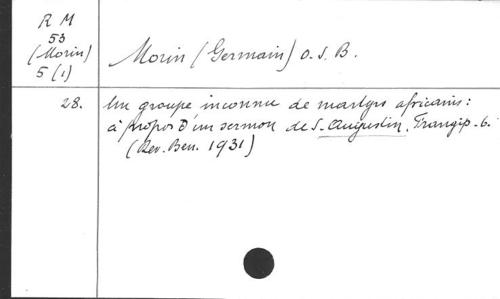 R M
53
(Morin)
5 (1)
Morin (Germain) O. S. B.
28.
Un groupe inconnu de martyrs africains:
à propos d'un sermon de S. Augustin, Frangip. 6.
(Rev. Ben. 1931)